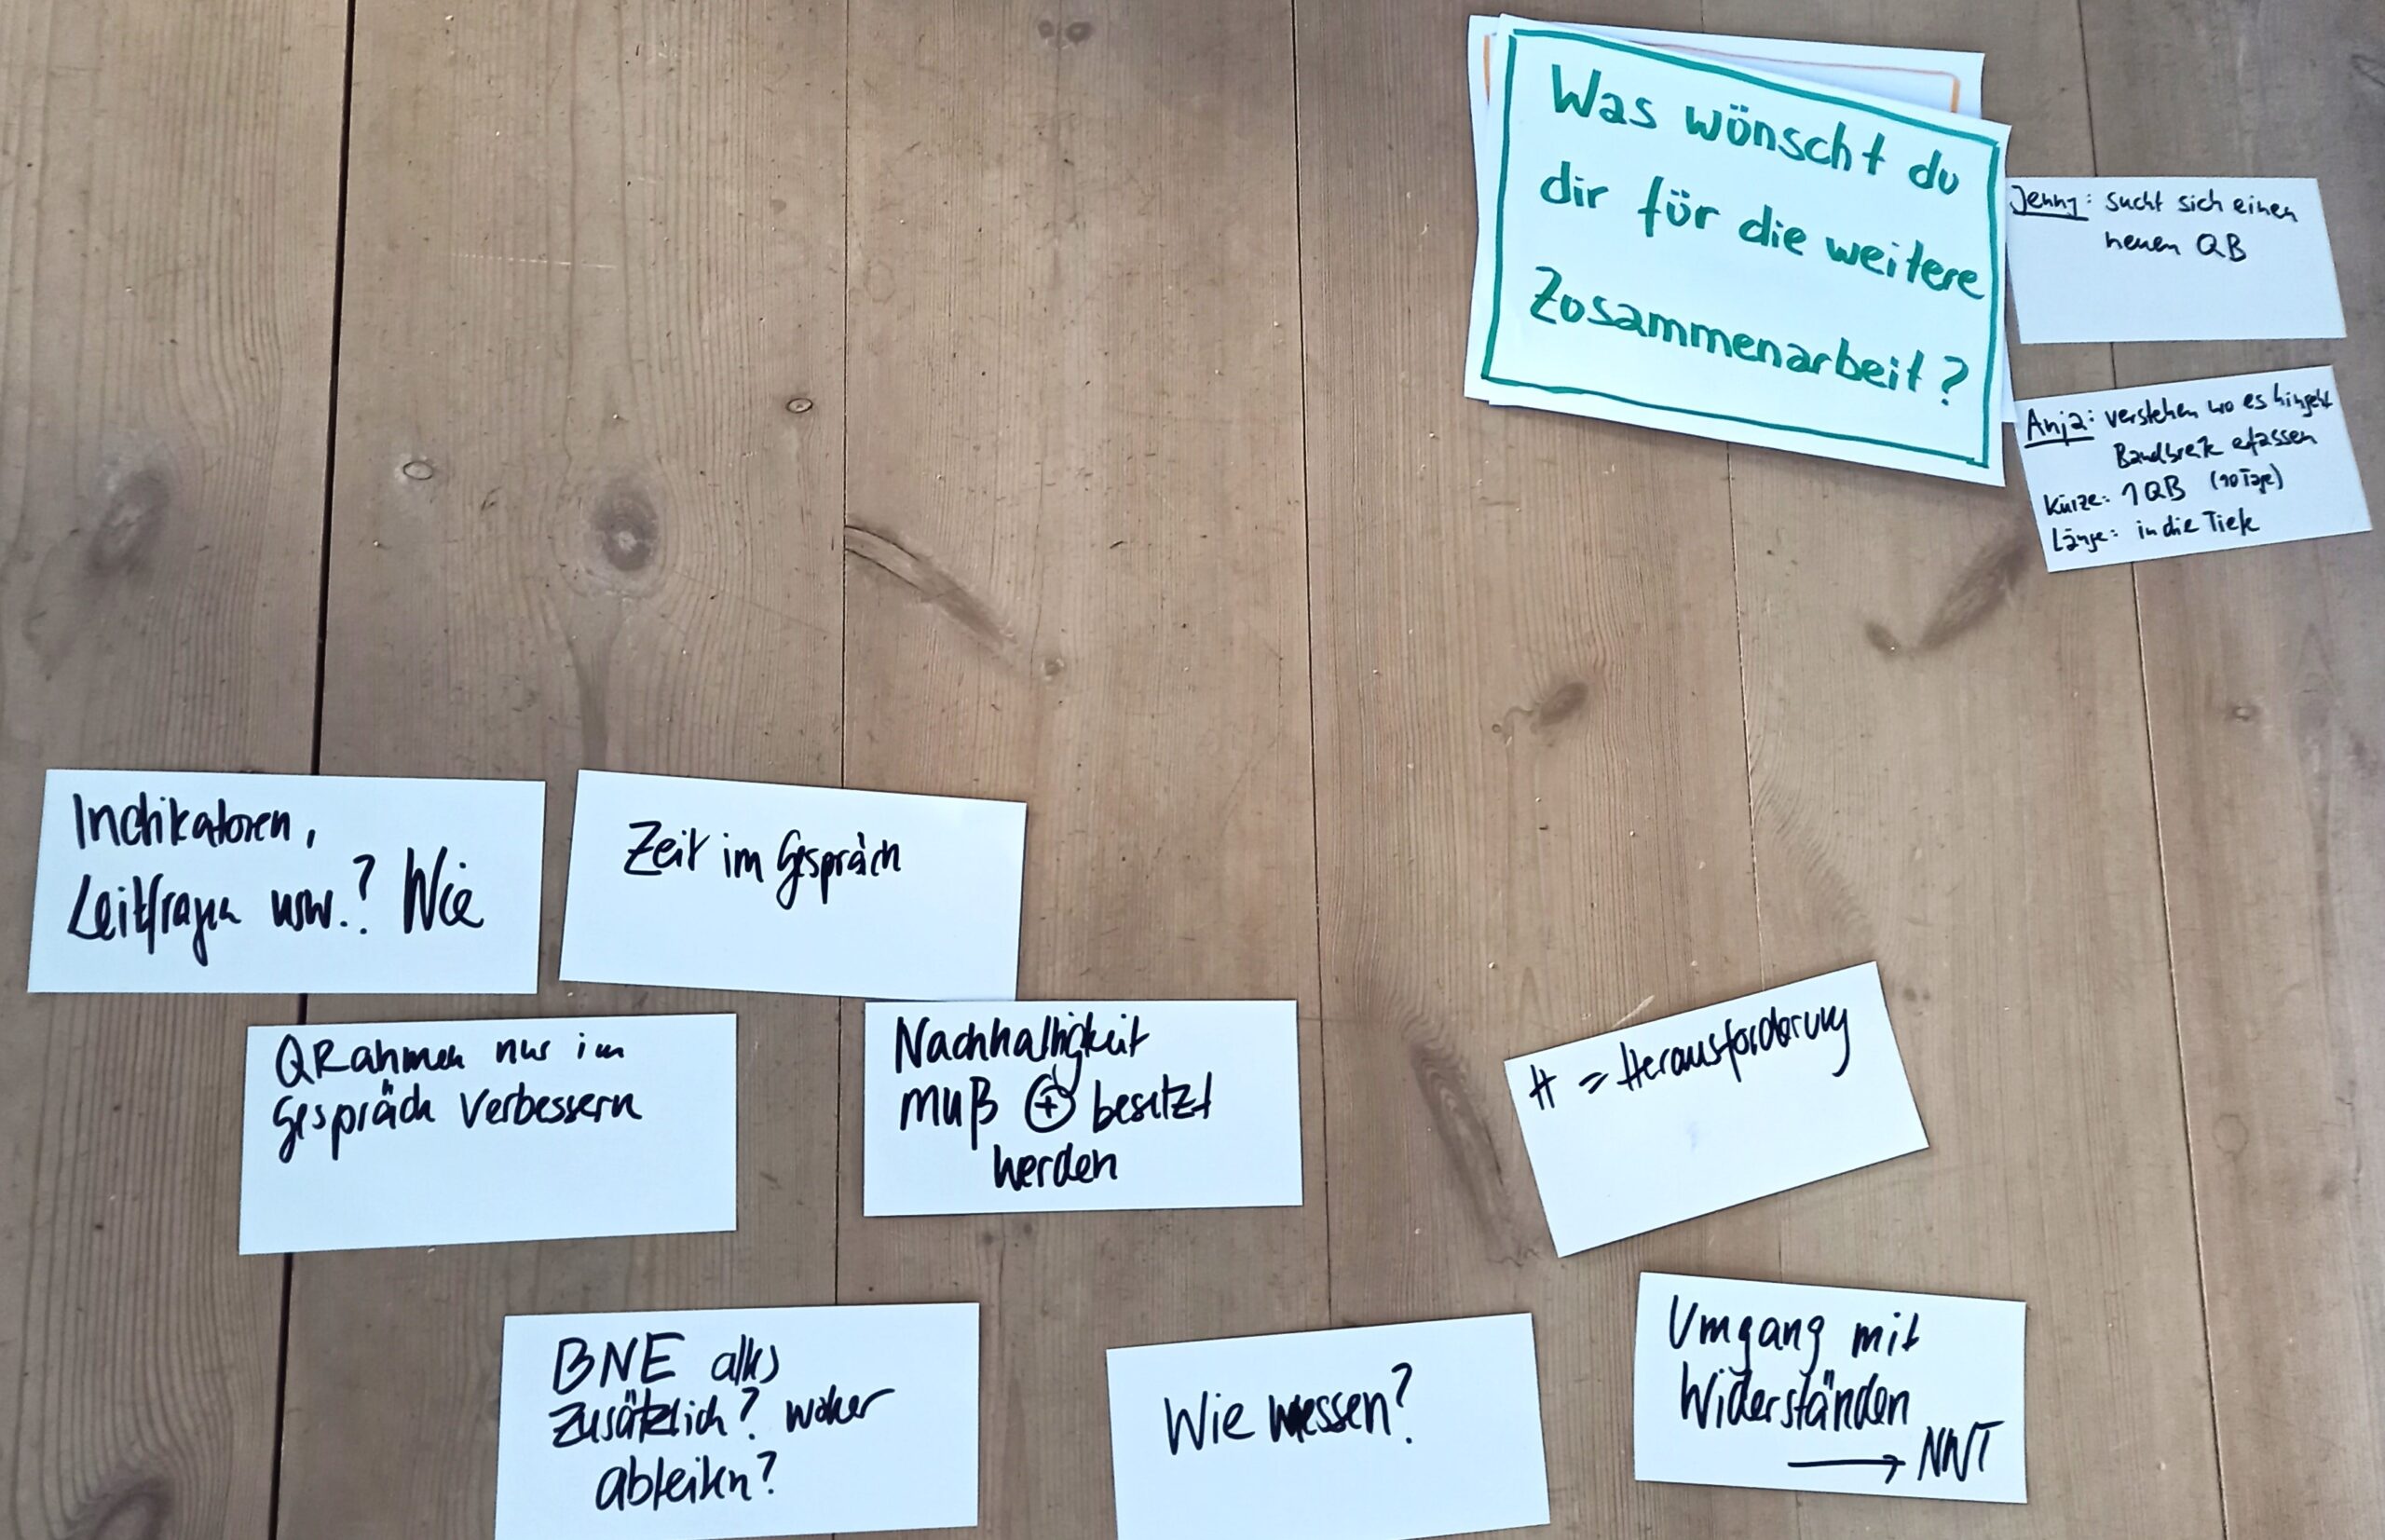 Was wünscht du
dir für die weitere
Zusammenarbeit?
Jenny: sucht sich einen
neuen QB
Anja: verstehen wo es hingeht
Bandbreite efassen
Kürze: 1 QB (10 Tage)
Länge: in die Tiefe
Indikatoren,
Leitfragen usw.? Wie
Zeit im Gespräch
QRahmen nur im
Gespräch verbessern
Nachhaltigkeit
muß ⊕ besetzt
werden
H = Herausforderung
BNE alles
zusätzlich? woher
ableiten?
Wie messen?
Umgang mit
Widerständen
→ NNT